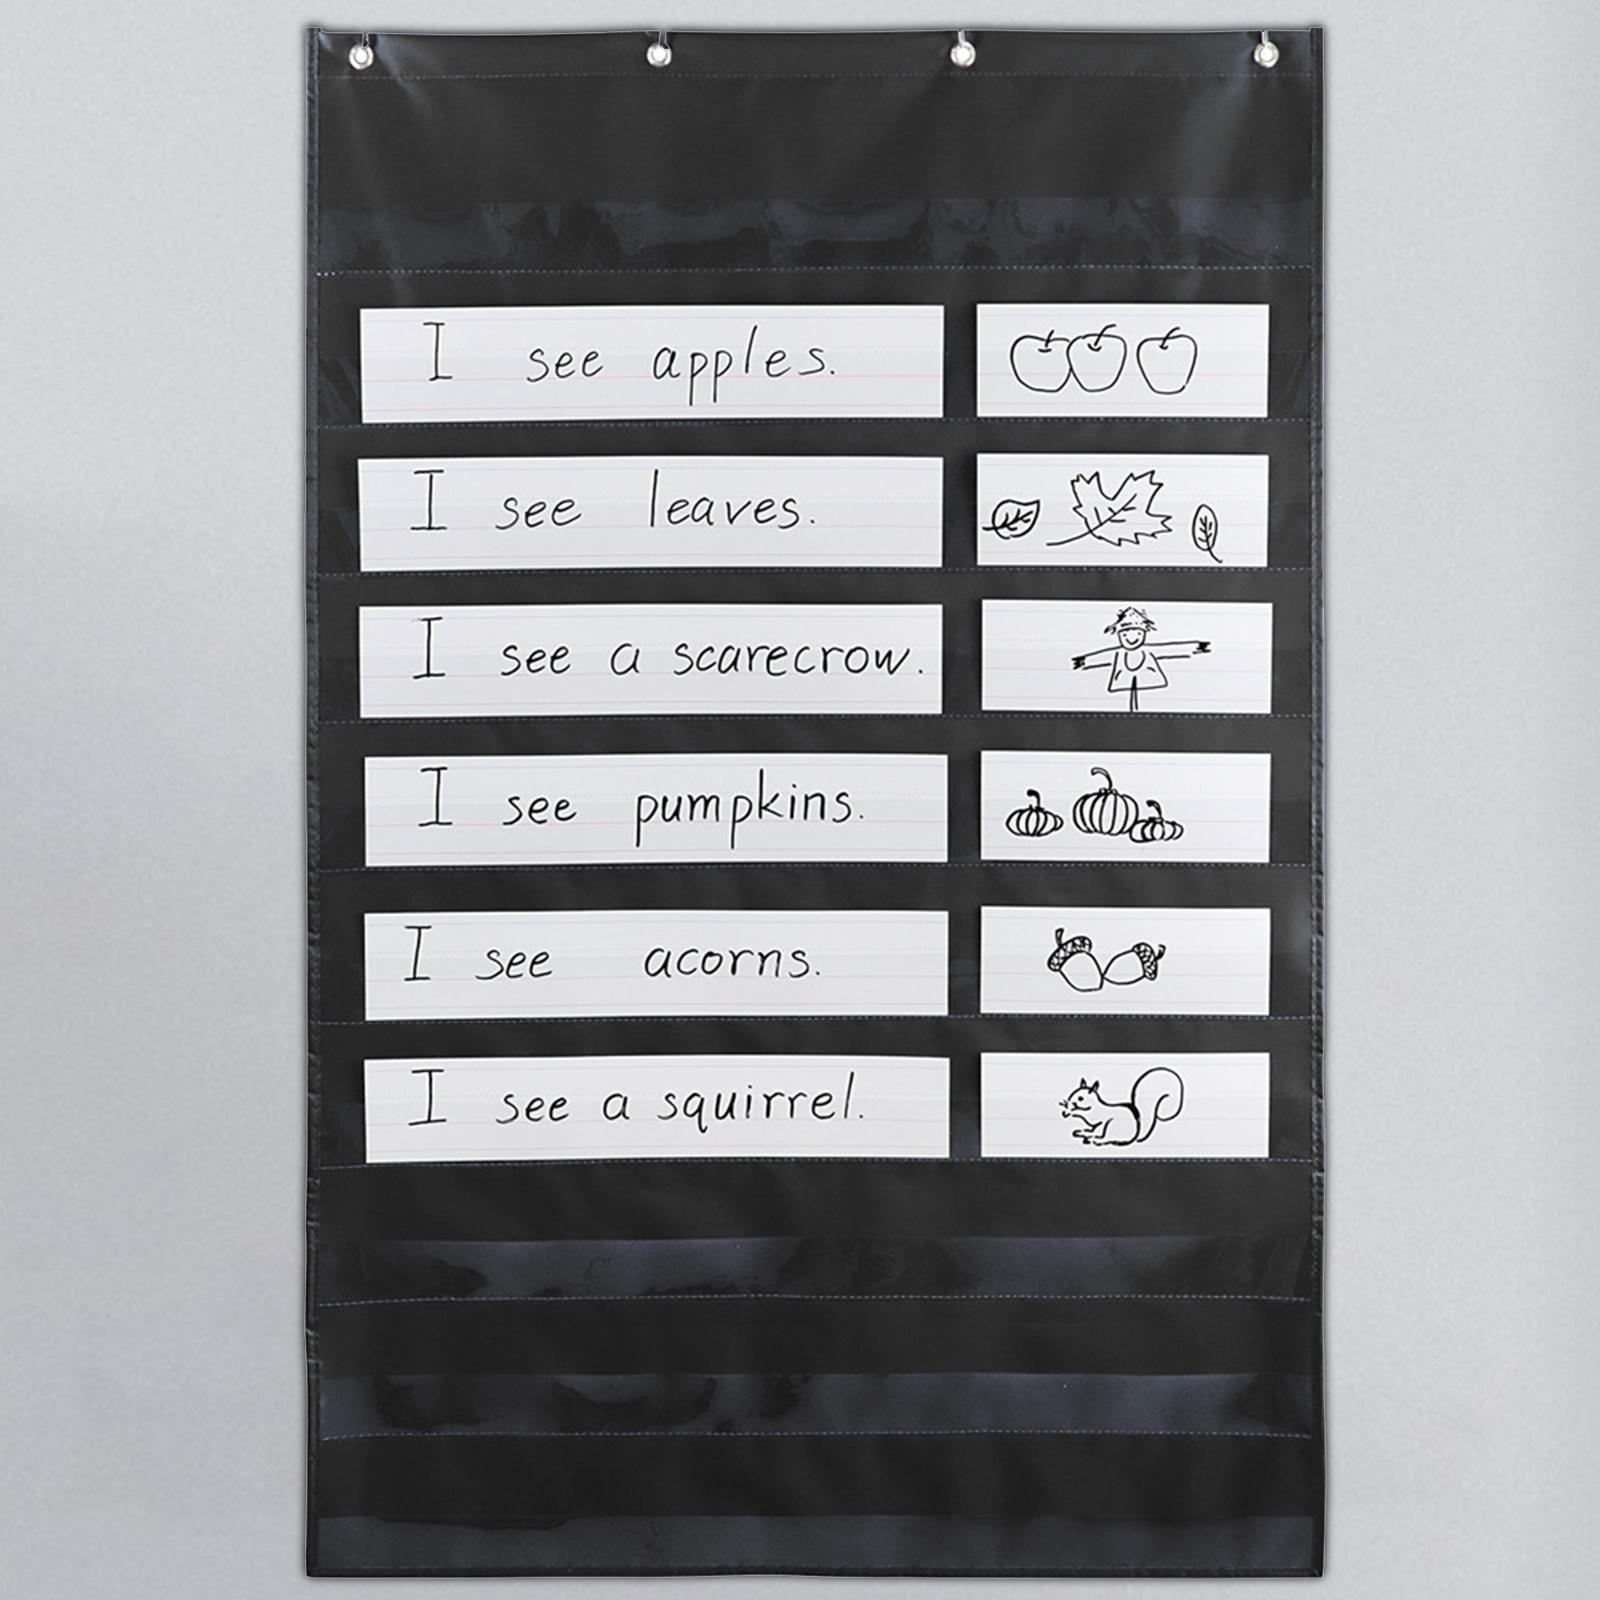 I see apples.
I see leaves.
I see a scarecrow.
I see pumpkins.
I see acorns.
I see a squirrel.